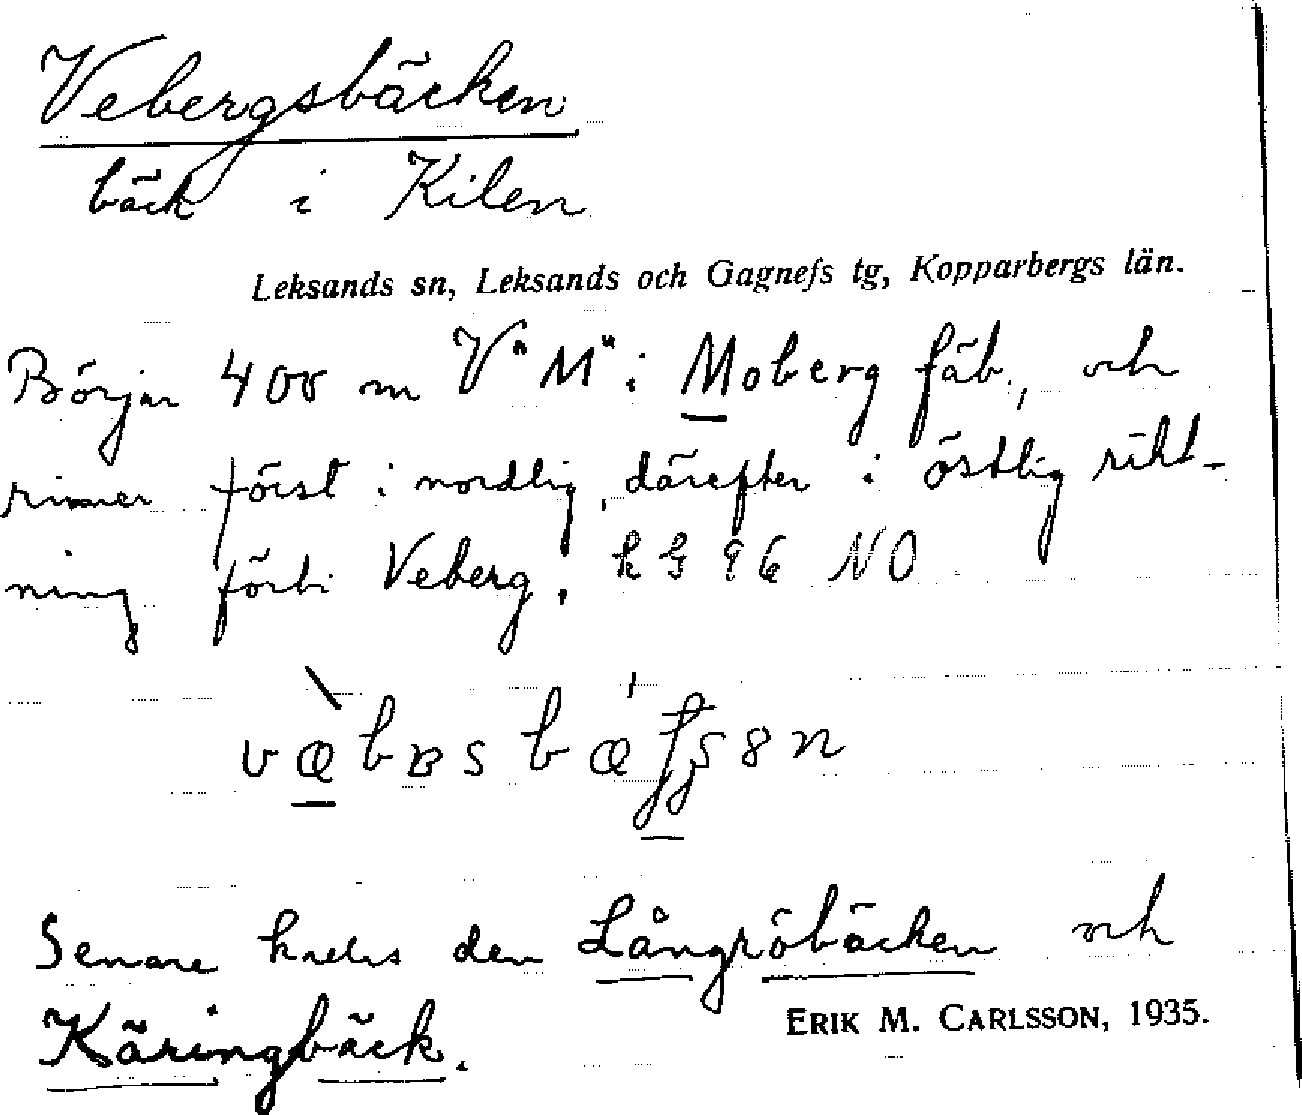 Vebergsbäcken
bäck i Kilen
Leksands sn, Leksands och Gagnefs tg, Kopparbergs län.
Börjar 400 m V "M" i Moberg fäb., och
rinner först i nordlig, därefter i östlig rikt-
ning förbi Veberg. k G 96 NO
Senare kallas den Långröbäcken och
Käringbäck.
ERIK M. CARLSSON, 1935.